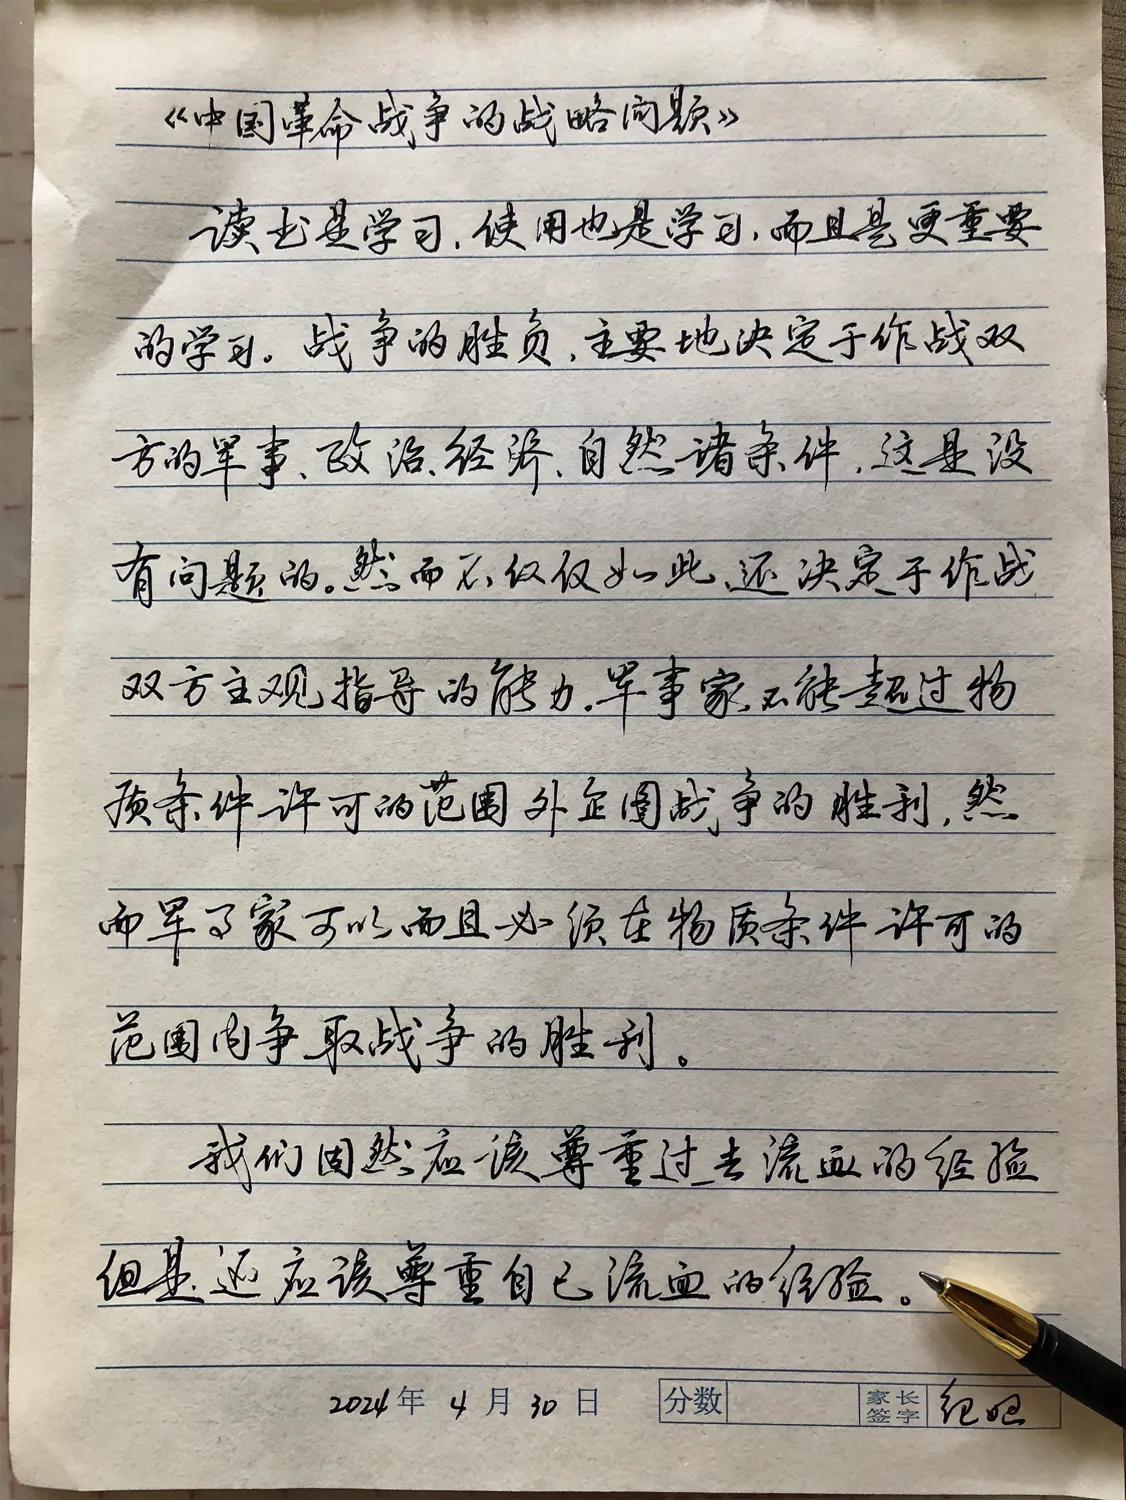 《中国革命战争的战略问题》
读书是学习，使用也是学习，而且是更重要
的学习。战争的胜负，主要地决定于作战双
方的军事、政治、经济、自然诸条件，这是没
有问题的。然而不仅仅如此，还决定于作战
双方主观指导的能力。军事家不能超过物
质条件许可的范围外企图战争的胜利，然
而军事家可以而且必须在物质条件许可的
范围内争取战争的胜利。
我们固然应该尊重过去流血的经验
但是，还应该尊重自己流血的经验。
2024年 4月 30日 分数 家长签字